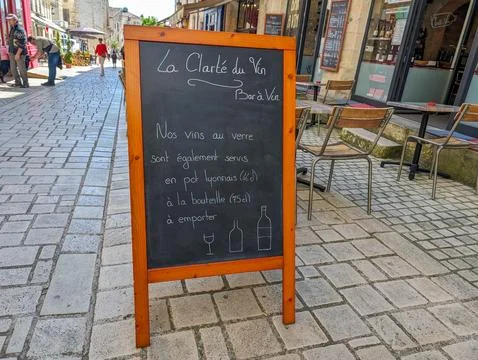 La Clarté du Vin
Bar à Vin
Nos vins au verre
sont également servis
en pot lyonnais (46cl)
à la bouteille (75cl)
à emporter